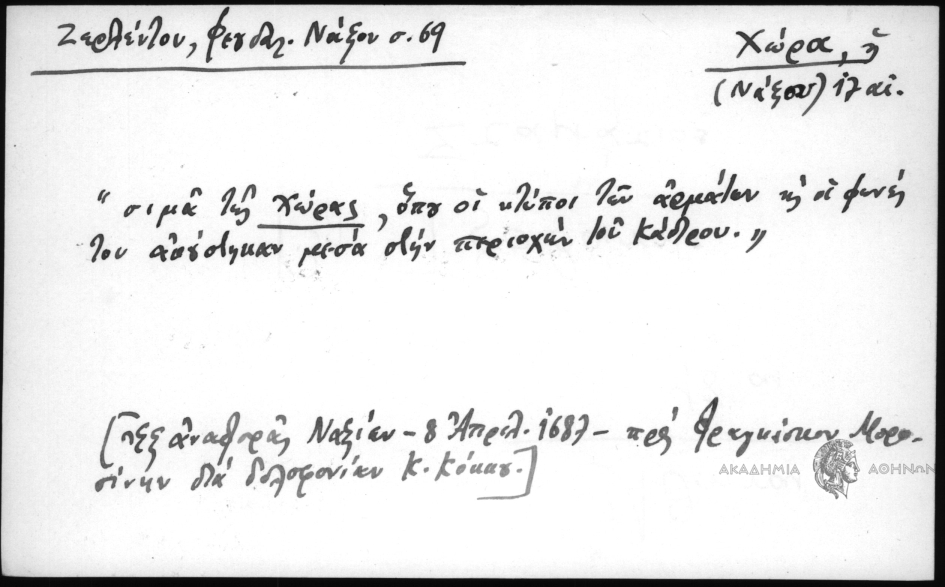 Ζερλέντου, Φεουδαλ. Νάξου σ. 69
Χώρα, ἡ
(Νάξου) 17 αἰ.
“ σιμὰ τῆς Χώρας, ὅπου οἱ κτύποι τῶν ἀρμάτων κ̀ οἱ φωνές
του ἀκούστηκαν μεσὰ στὴν περιοχὴν τοῦ Κάστρου. „
[ἐξ ἀναφορᾶς Ναξίων – 8 Ἀπριλ. 1687 – πρὸς Φραγκίσκον Μορο-
σίνην διὰ δολοφονίαν Κ. Κόκκου.]
ΑΚΑΔΗΜΙΑ ΑΘΗΝΩΝ